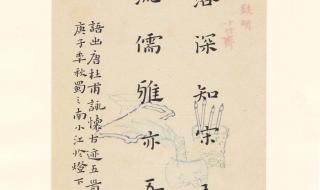 落深知宋
流儒雅亦
語出唐杜甫詠懷古迹五首
庚子季秋蜀之南小江於燈下